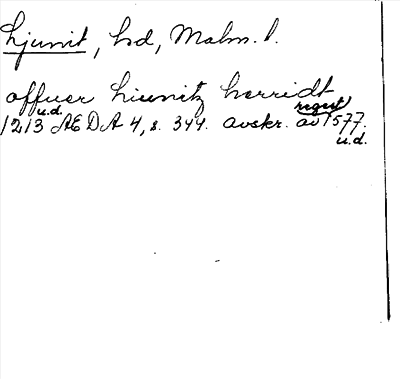 Ljunit, hd, Malm. l.
offuer Liunitz herridt
u.d. regist
1213 AEDA 4, s. 344. avskr. av 1577,
u.d.